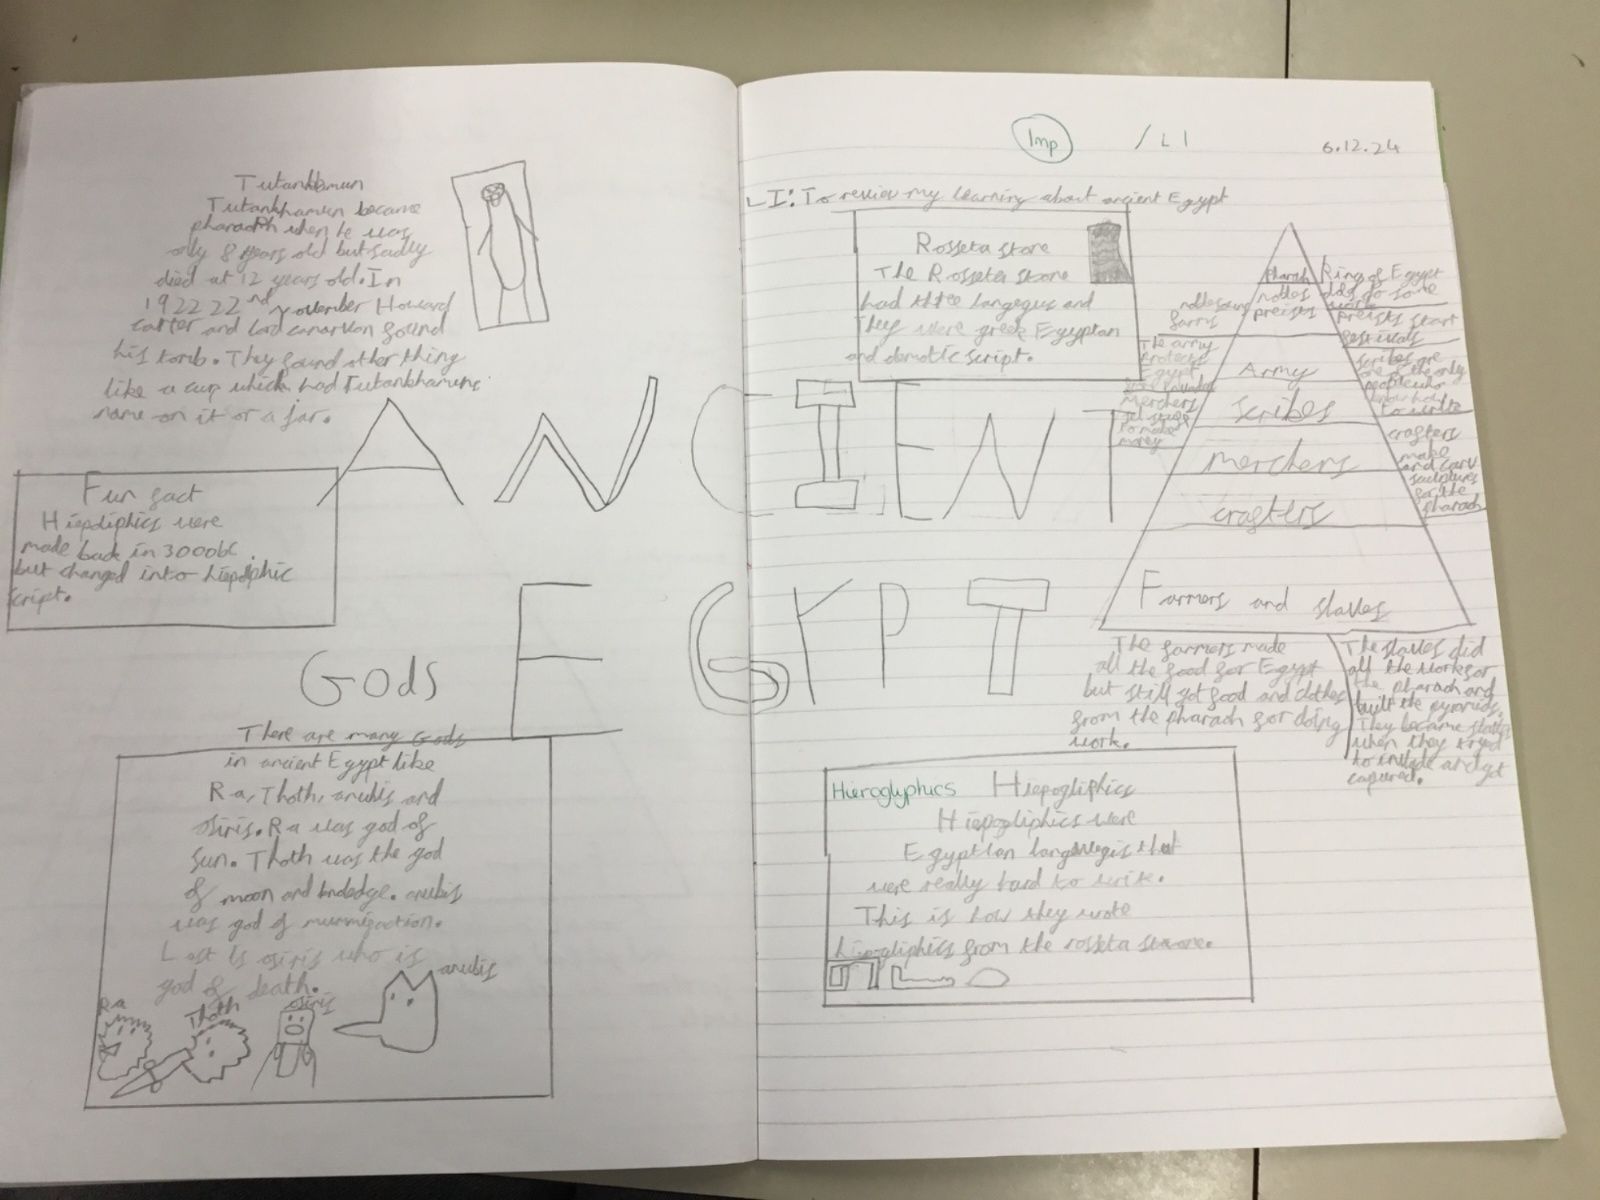 Tutankhmun
Tutankhamun became
pharaoh when he was
only 8 years old but sadly
died at 12 years old. In
1922 22nd november Howard
carter and lord canarvon found
his tomb. They found other thing
like a cup which had Tutankhamuns
name on it or a jar.
Fun fact
were
made back in 3000bc
but changed into
script.
ANCIENT
EGYPT
Gods
There are many Gods
in ancient Egypt like
Ra, Thoth, anubis and
osiris. Ra was god of
sun. Thoth was the god
of moon and anubis
was god of
Last is osiris who is
god of death.
Ra
Thoth
osiris
anubis
Imp
/ LI
6.12.24
LI: To review my learning about ancient Egypt
Rosseta stone
The Rosseta stone
had three and
They were greek Egyptan
and demotic script.
nobles
preists
Army
Scribes
merchers
crafters
Farmers and slaves
King of Egypt
preists start
The army
Egypt
Merchers
to make
money
scribes are
one of the only
people who
know how
to write
crafters
make
and carv
for the
pharaoh
The farmers made
all the food for Egypt
but still got food and clothes
from the pharaoh for doing
work.
The slaves did
all the work for
the pharaoh and
built the pyramids.
They became
when they tryed
to invade and got
capured.
Hieroglyphics Hiepogliphics
Hiepogliphics were
Egyptian that
were really hard to write.
This is how they wrote
from the rosseta